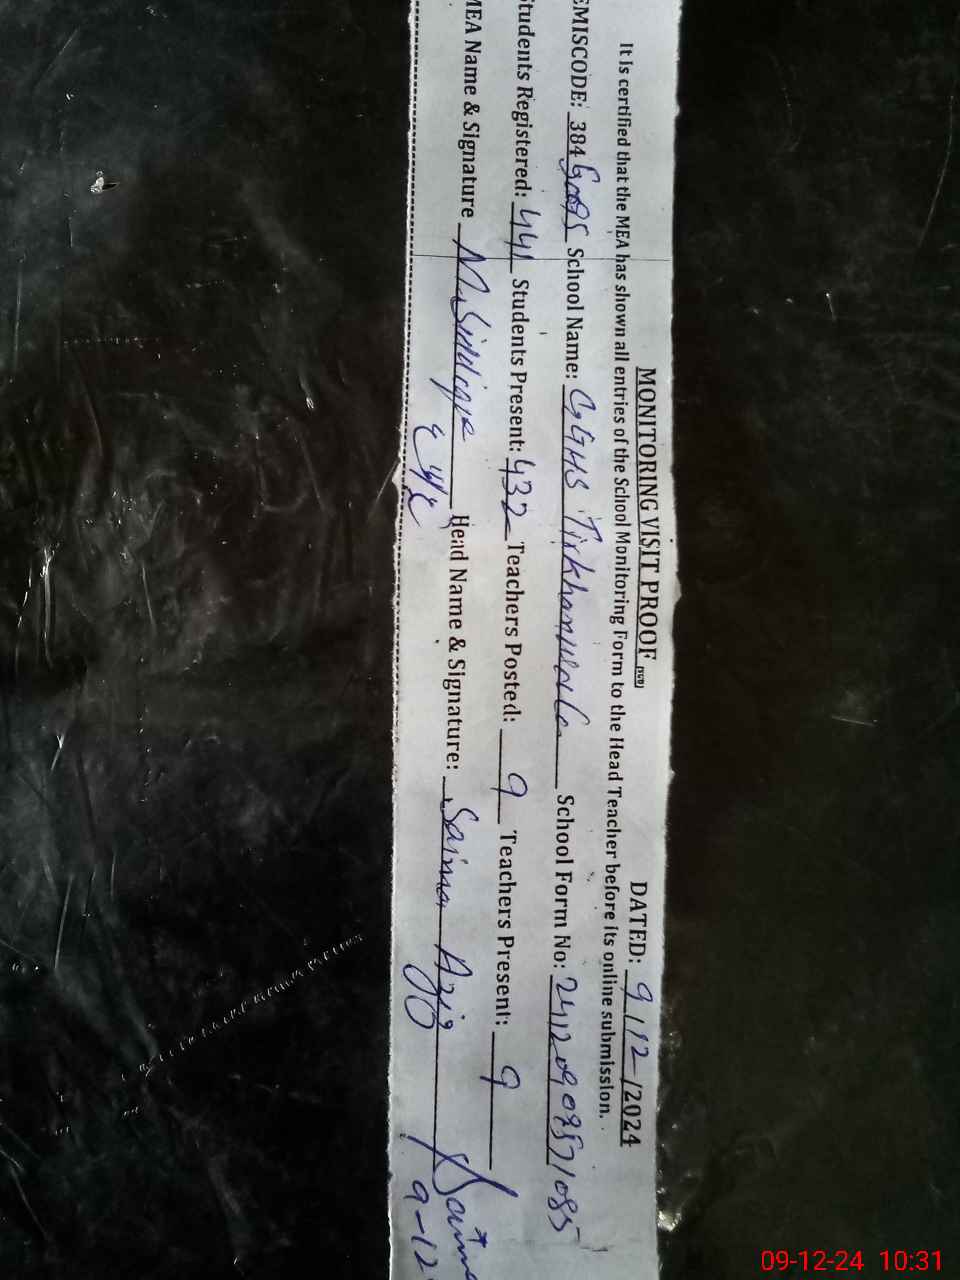 MONITORING VISIT PROOF DATED: 9/12/2024
It is certified that the MEA has shown all entries of the School Monitoring Form to the Head Teacher before its online submission.
EMISCODE: 384 School Name: GGHS School Form No:
Students Registered: 441 Students Present: 432 Teachers Posted: 9 Teachers Present: 9
MEA Name & Signature M. Siddique Head Name & Signature: Saima Aziz
9-12
09-12-24 10:31